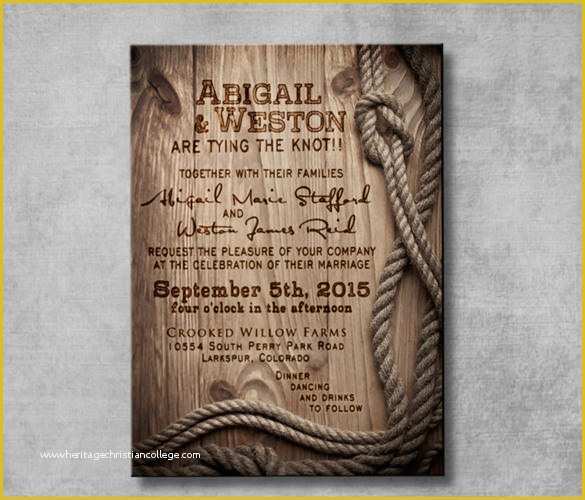 Abigail
& Weston
ARE TYING THE KNOT!!
TOGETHER WITH THEIR FAMILIES
Abigail Marie Stafford
AND
Weston James Reid
REQUEST THE PLEASURE OF YOUR COMPANY
AT THE CELEBRATION OF THEIR MARRIAGE
September 5th, 2015
four o'clock in the afternoon
Crooked Willow Farms
10554 South Perry Park Road
Larkspur, Colorado
Dinner
dancing
and drinks
to follow
www.heritagechristiancollege.com